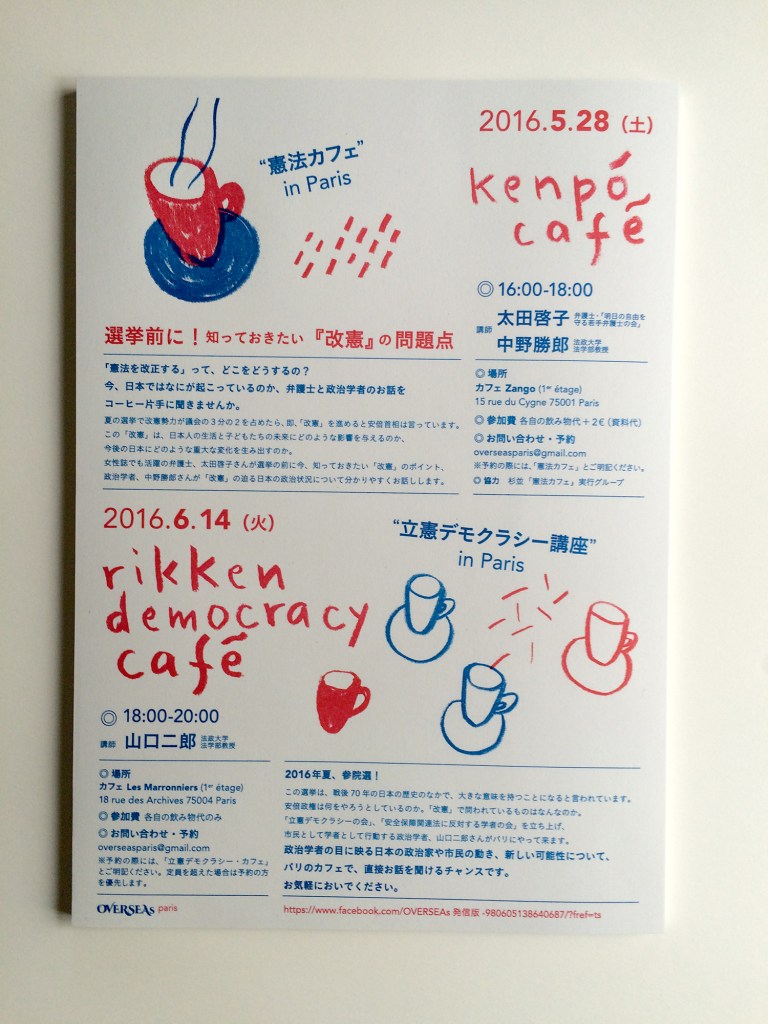 2016.5.28（土）
“憲法カフェ”
in Paris
kenpó
café
◎ 16:00-18:00
講師 太田啓子 弁護士・「明日の自由を
守る若手弁護士の会」
中野勝郎 法政大学
法学部教授
選挙前に！知っておきたい『改憲』の問題点
「憲法を改正する」って、どこをどうするの？
今、日本ではなにが起こっているのか、弁護士と政治学者のお話を
コーヒー片手に聞きませんか。
夏の選挙で改憲勢力が議会の3分の2を占めたら、即、「改憲」を進めると安倍首相は言っています。
この「改憲」は、日本人の生活と子どもたちの未来にどのような影響を与えるのか、
今後の日本にどのような重大な変化を生み出すのか。
女性誌でも活躍の弁護士、太田啓子さんが選挙の前に今、知っておきたい「改憲」のポイント、
政治学者、中野勝郎さんが「改憲」の迫る日本の政治状況について分かりやすくお話しします。
◎ 場所
カフェ Zango (1er étage)
15 rue du Cygne 75001 Paris
◎ 参加費 各自の飲み物代＋2€（資料代）
◎ お問い合わせ・予約
overseasparis@gmail.com
※予約の際には、「憲法カフェ」とご明記ください。
◎ 協力 杉並「憲法カフェ」実行グループ
2016.6.14（火）
rikken
democracy
café
“立憲デモクラシー講座”
in Paris
◎ 18:00-20:00
講師 山口二郎 法政大学
法学部教授
◎ 場所
カフェ Les Marronniers (1er étage)
18 rue des Archives 75004 Paris
◎ 参加費 各自の飲み物代のみ
◎ お問い合わせ・予約
overseasparis@gmail.com
※予約の際には、「立憲デモクラシー・カフェ」
とご明記ください。定員を超えた場合は予約の方
を優先します。
2016年夏、参院選！
この選挙は、戦後70年の日本の歴史のなかで、大きな意味を持つことになると言われています。
安倍政権は何をやろうとしているのか。「改憲」で問われているものはなんなのか。
「立憲デモクラシーの会」、「安全保障関連法に反対する学者の会」を立ち上げ、
市民として学者として行動する政治学者、山口二郎さんがパリにやって来ます。
政治学者の目に映る日本の政治家や市民の動き、新しい可能性について、
パリのカフェで、直接お話を聞けるチャンスです。
お気軽においでください。
OVERSEAs paris
https://www.facebook.com/OVERSEAs 発信版 -980605138640687/?fref=ts